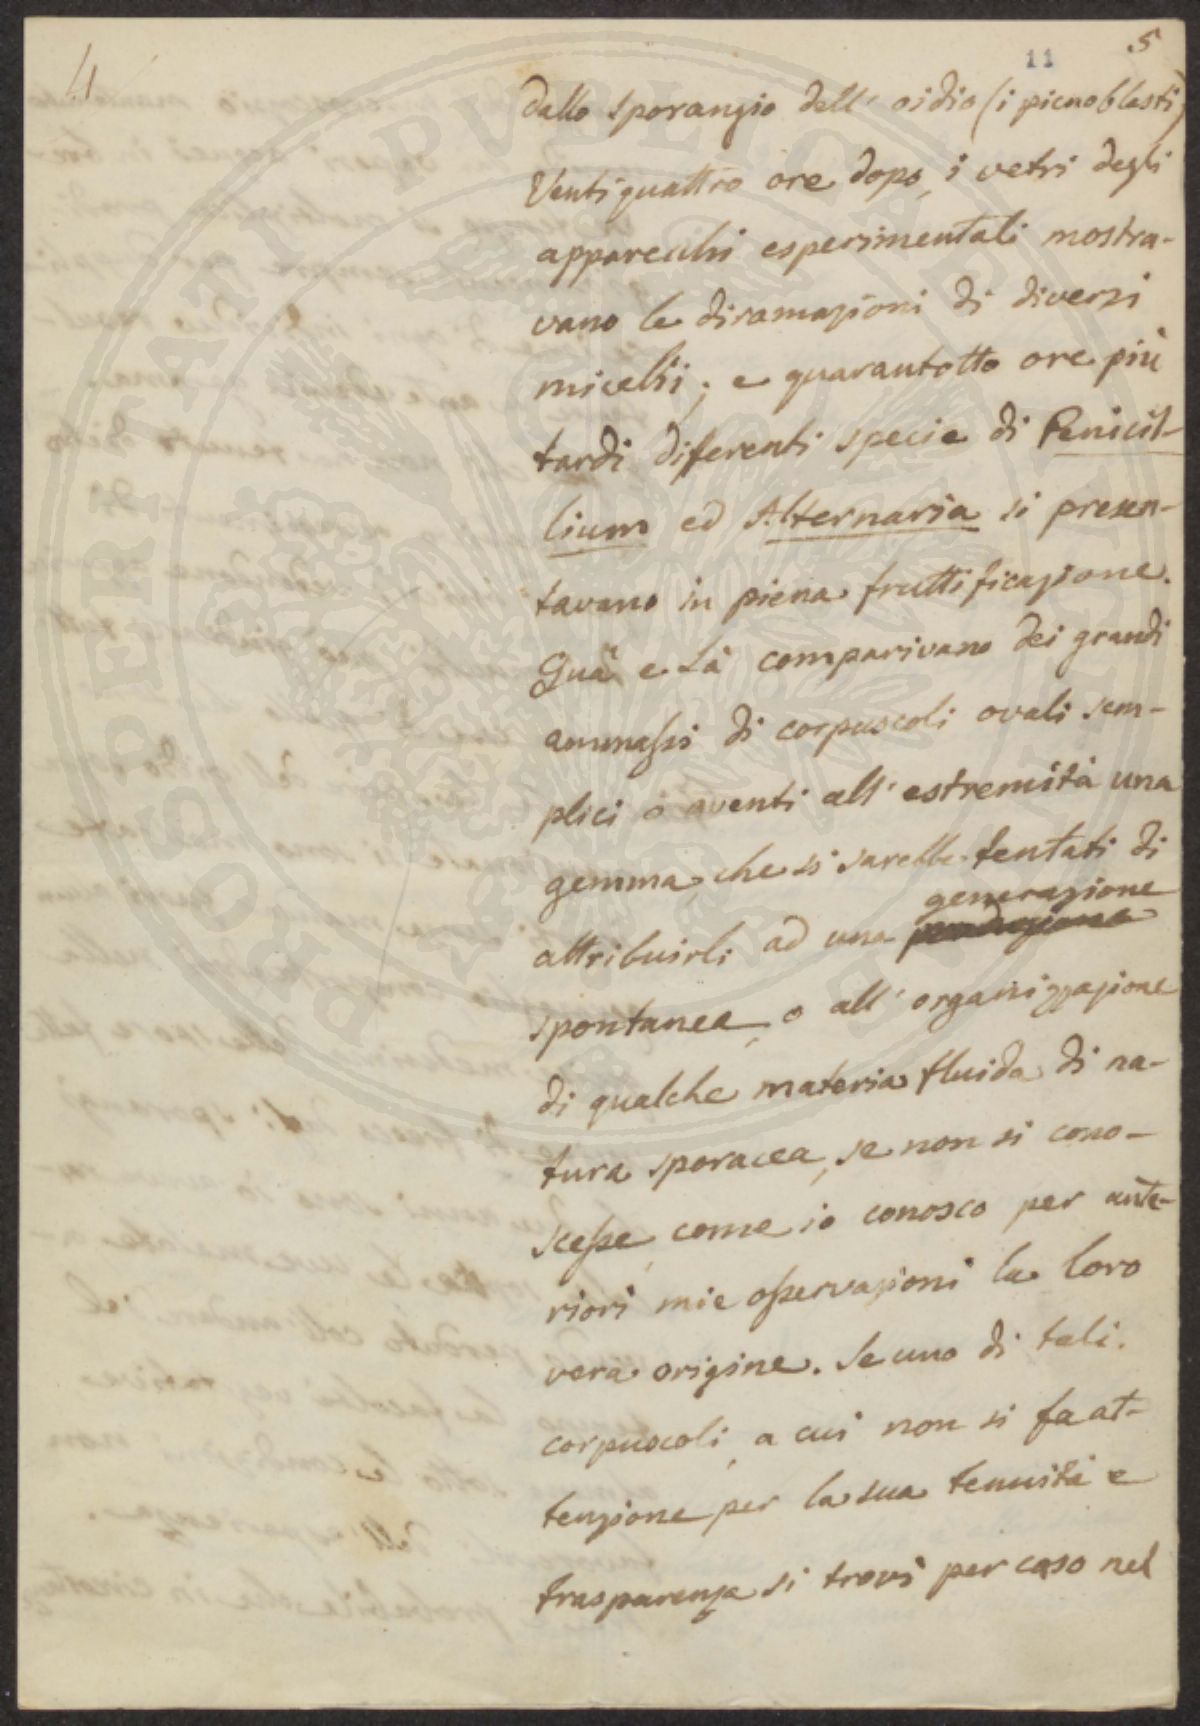 4
11
5
dallo sporangio dell' oidio (i picnoblasti)
Ventiquattro ore dopo, i vetri degli
apparecchi esperimentali mostra-
vano le diramazioni di diversi
micelii; e quarantotto ore più
tardi diferenti specie di Penicil-
lium ed Alternaria si presen-
tavano in piena fruttificazione.
Quà e là comparivano dei grandi
ammassi di corpuscoli ovali sem-
plici o aventi all' estremità una
gemma, che si sarebbe tentati di
generazione
attribuirli ad una
spontanea, o all' organizzazione
di qualche materia fluida di na-
tura sporacea, se non si cono-
scesse, come io conosco per ante-
riori mie osservazioni la loro
vera origine. Se uno di tali
corpuscoli, a cui non si fa at-
tenzione per la sua tenuità e
trasparenza si trovi per caso nel
PROSPERITATI PUBLICAE AUGENDAE